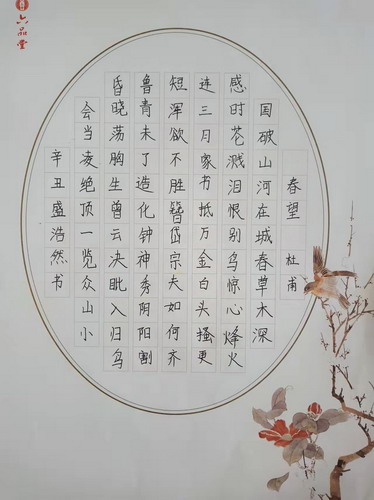 春望 杜甫
国破山河在城春草木深
感时花溅泪恨别鸟惊心烽火
连三月家书抵万金白头搔更
短浑欲不胜簪岱宗夫如何齐
鲁青未了造化钟神秀阴阳割
昏晓荡胸生曾云决眦入归鸟
会当凌绝顶一览众山小
辛丑盛浩然书
六品堂